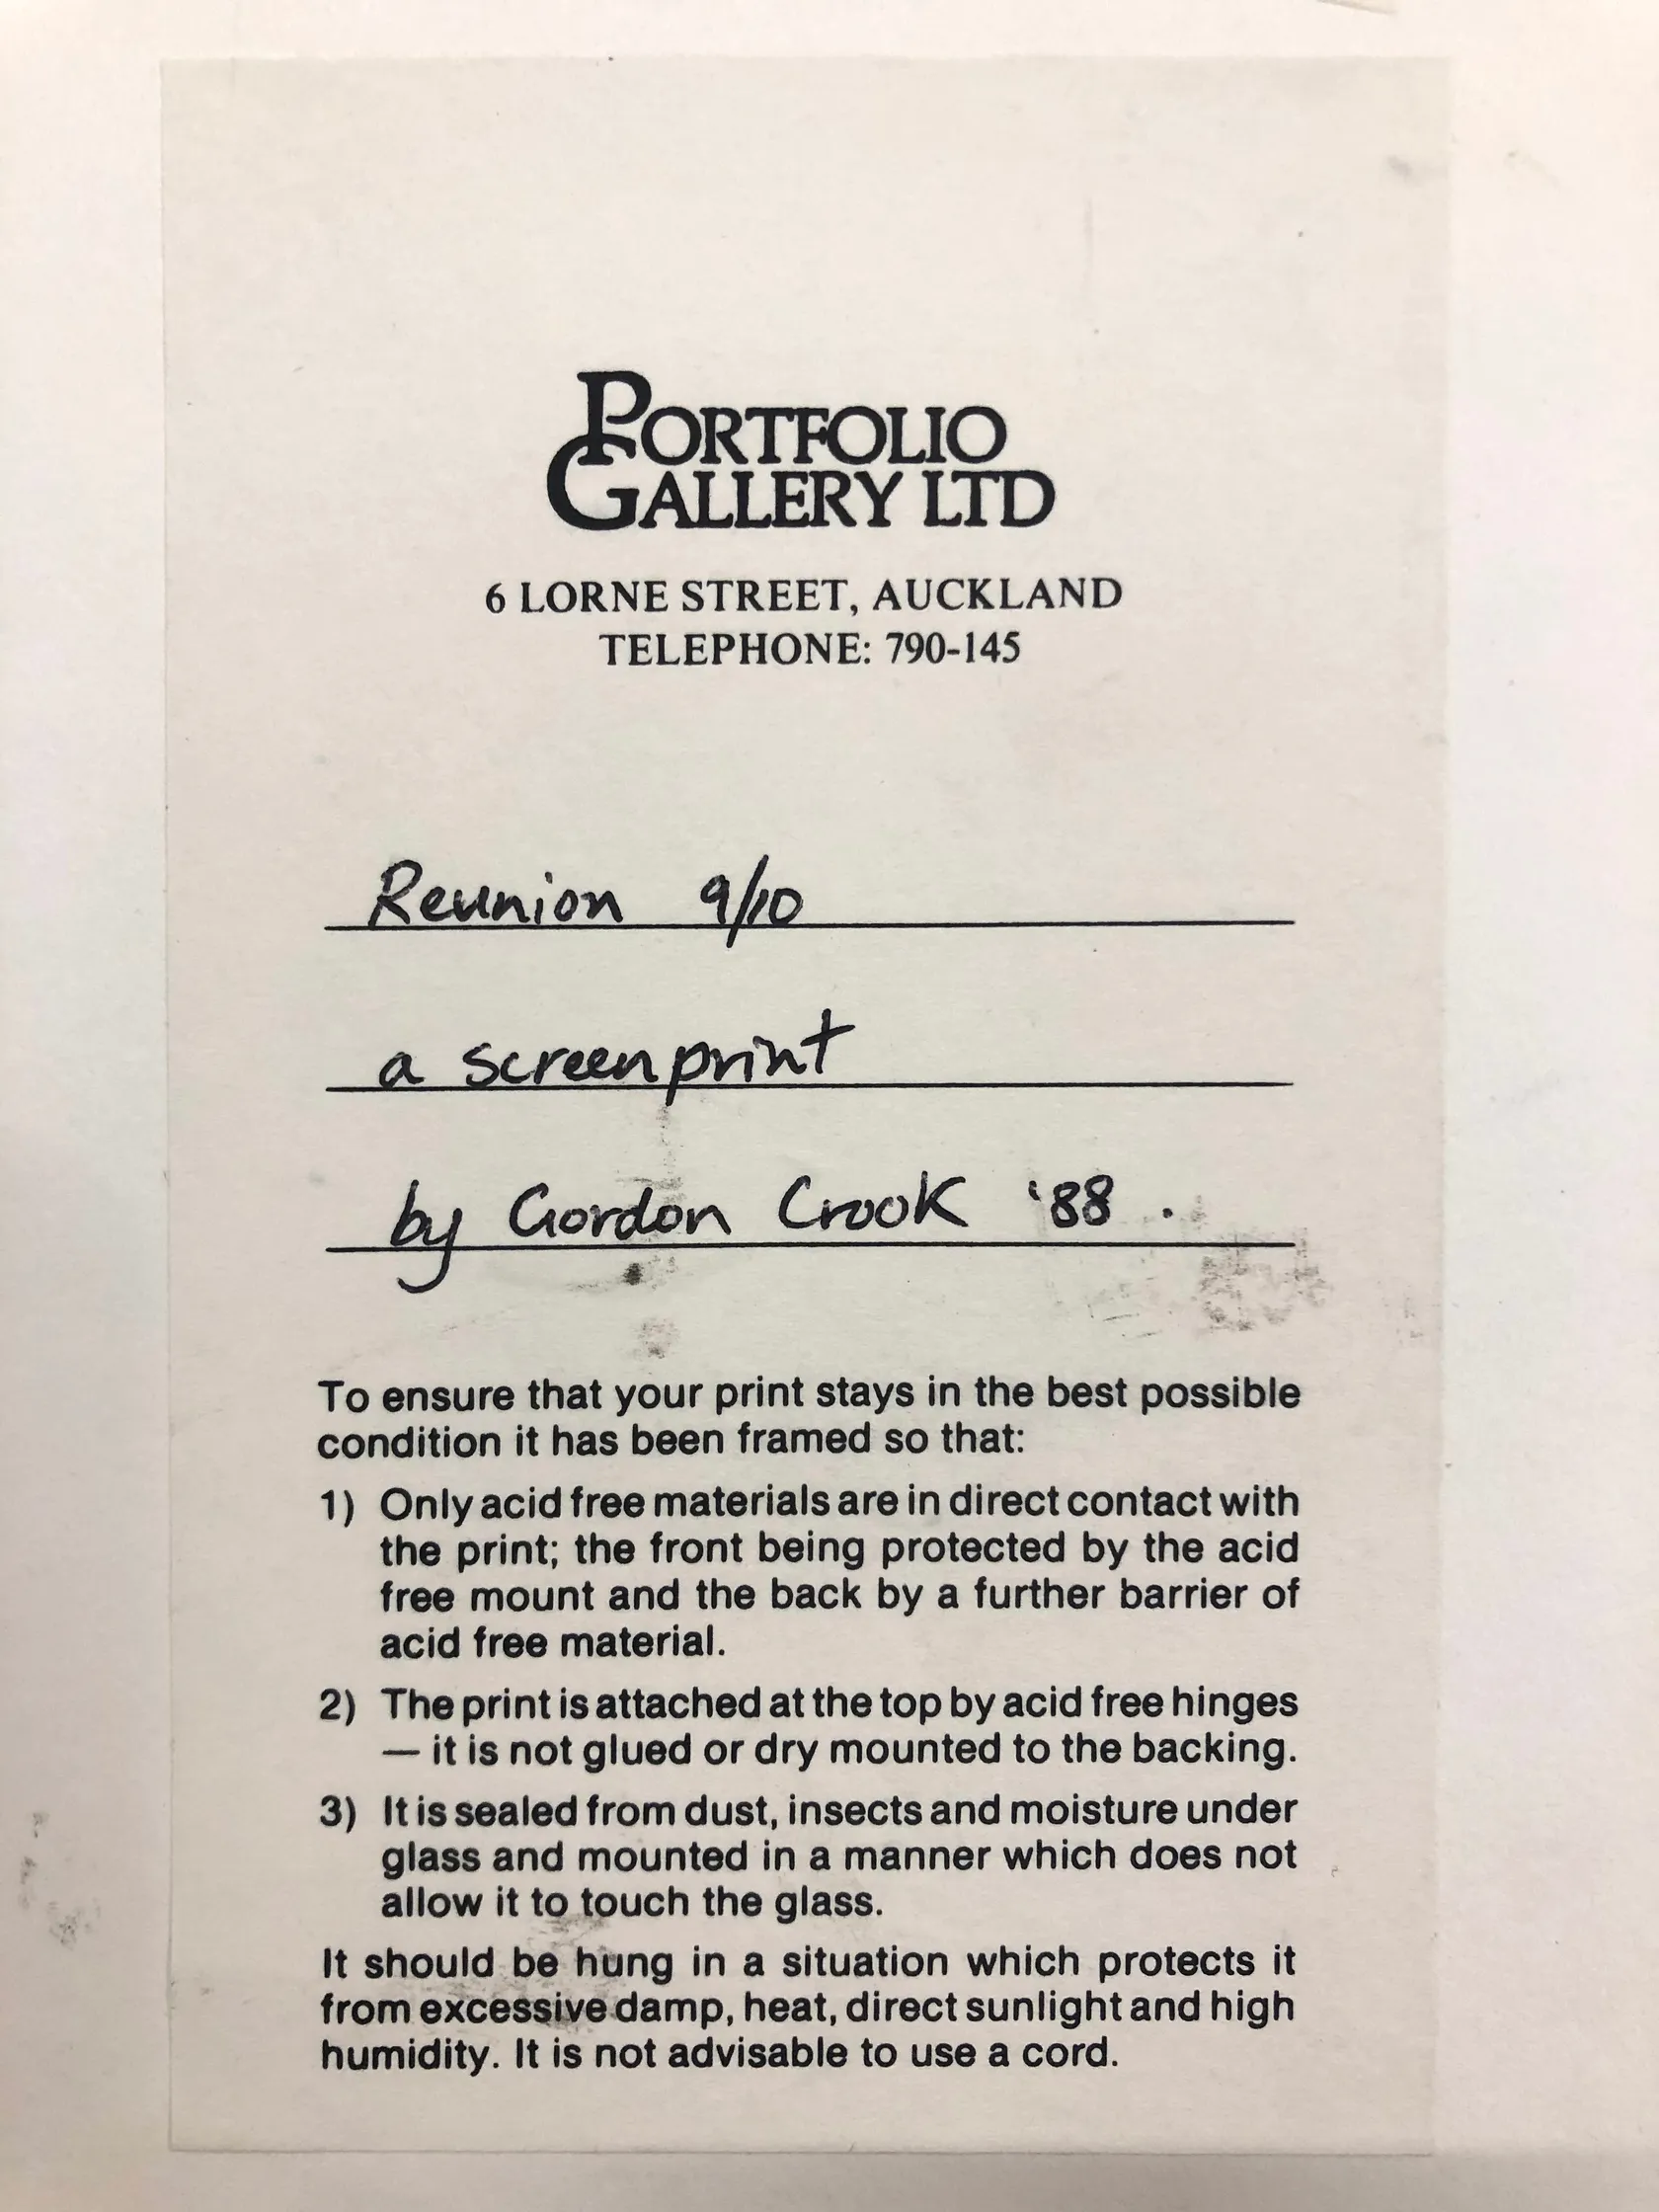 PORTFOLIO
GALLERY LTD
6 LORNE STREET, AUCKLAND
TELEPHONE: 790-145
Reunion 9/10
a screenprint
by Gordon Crook '88 .
To ensure that your print stays in the best possible
condition it has been framed so that:
1) Only acid free materials are in direct contact with
the print; the front being protected by the acid
free mount and the back by a further barrier of
acid free material.
2) The print is attached at the top by acid free hinges
— it is not glued or dry mounted to the backing.
3) It is sealed from dust, insects and moisture under
glass and mounted in a manner which does not
allow it to touch the glass.
It should be hung in a situation which protects it
from excessive damp, heat, direct sunlight and high
humidity. It is not advisable to use a cord.